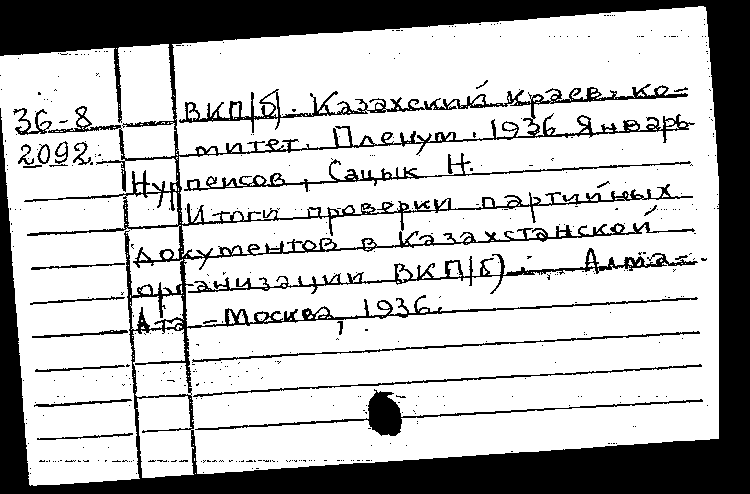 36-8 ВКП(б). Казахский краев. ко-
2092. митет. Пленум. 1936. Январь
Нурпеисов, Сацык Н.
Итоги проверки партийных
документов в Казахстанской
организации ВКП(б). Алма-
Ата - Москва, 1936.